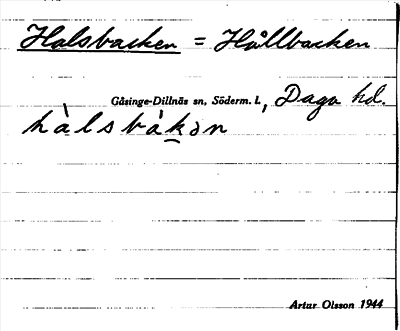 Halsbacken = Hållbacken
Gåsinge-Dillnäs sn, Söderm. l., Daga hd.
hàlsbàkən
Artur Olsson 1944